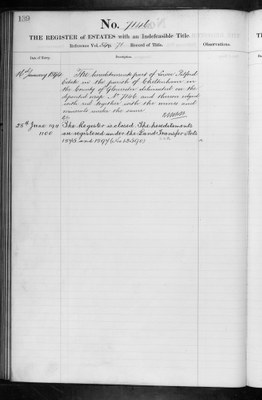 199
No. 7146
THE REGISTER of ESTATES with an Indefeasible Title.
Reference Vol. Record of Title.
Observations.
Date of Entry.
Description
The hereditaments part of
Estate in the parish of Cheltenham in
the County of Gloucester delineated on the
deposited map No 7146 and thereon edged
with red together with the mines and
minerals under the same
25th June
The Register is closed. The hereditaments
are registered under the Land Transfer Acts
1875 and 1897